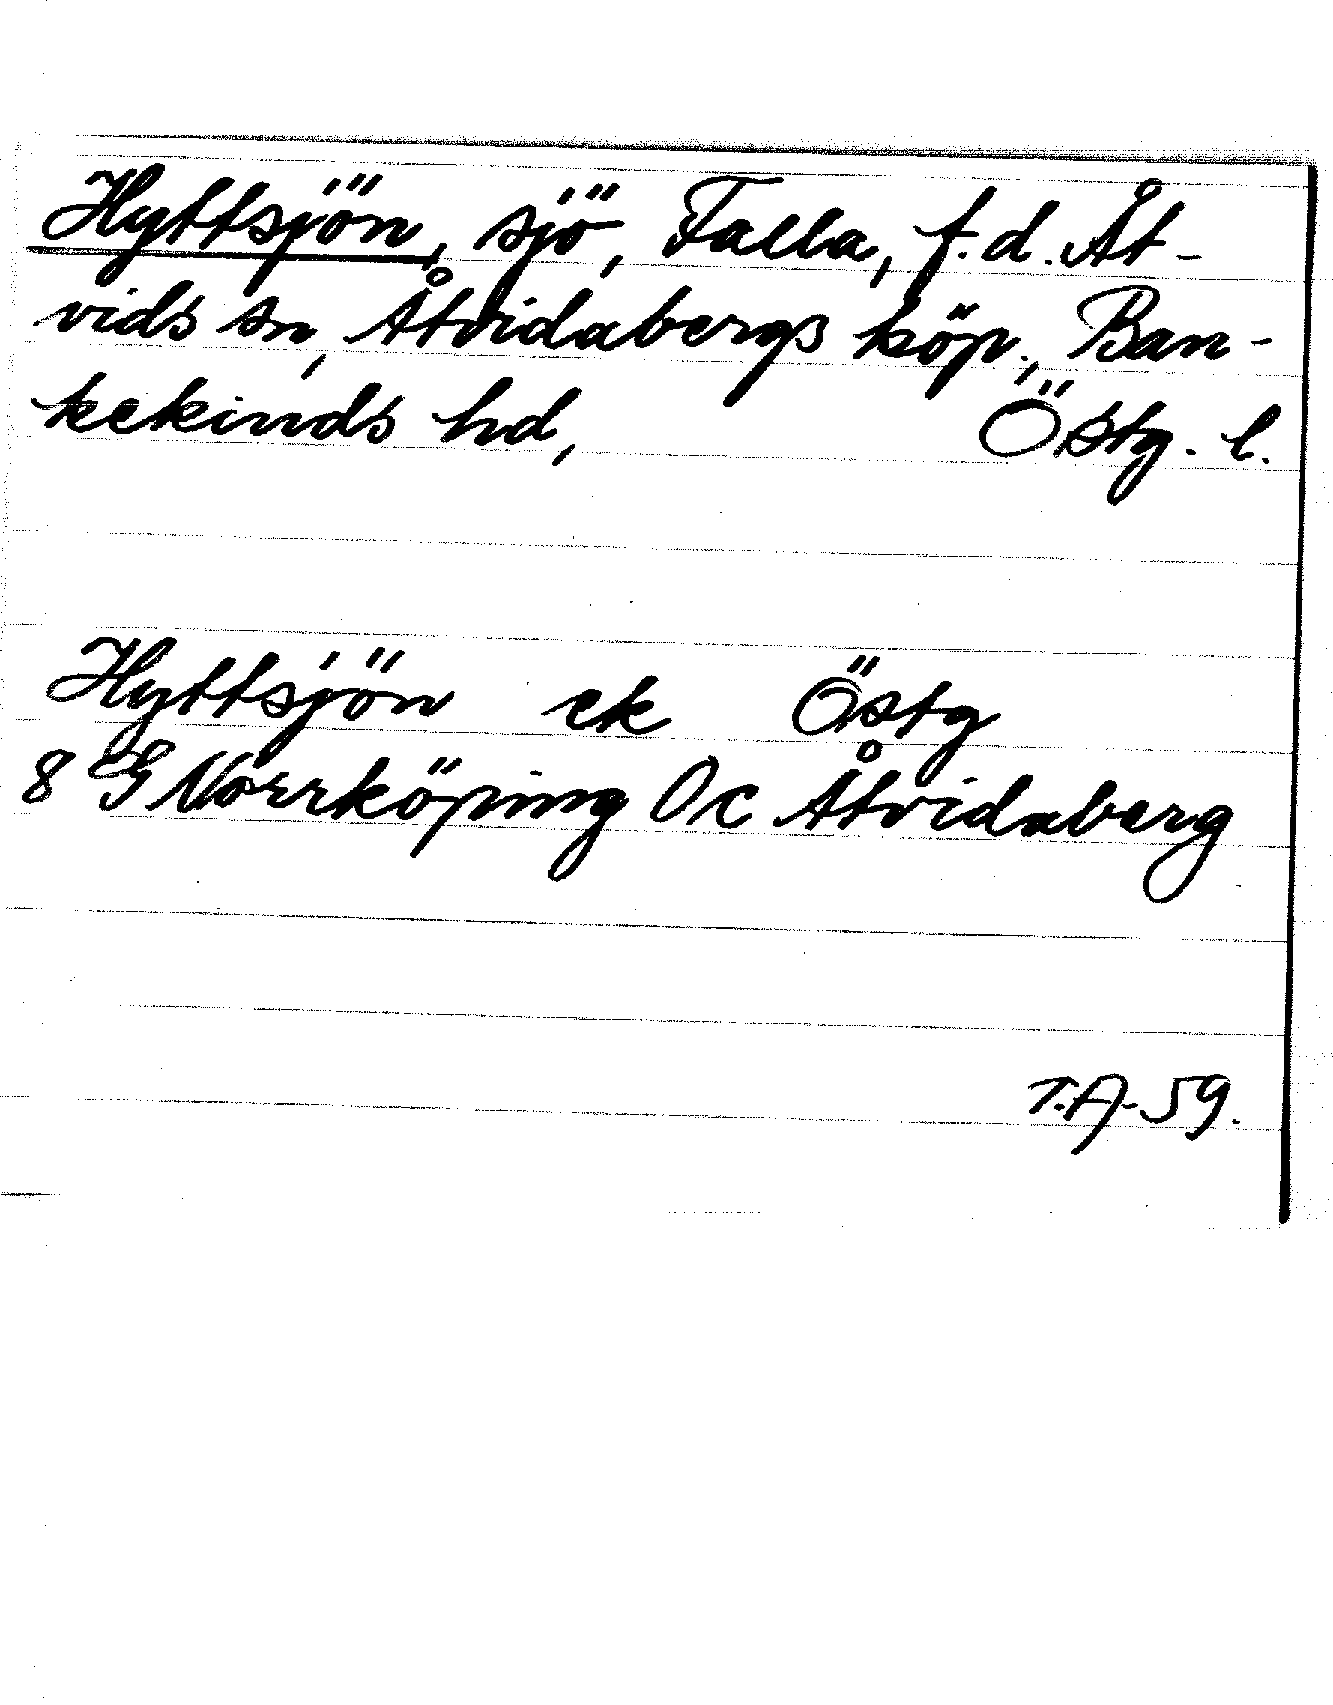 Hyttsjön, sjö, Falla, f.d. Åt-
vids sn, Åtvidabergs köp., Ban-
kekinds hd, Östg. l.
Hyttsjön ek Östg
8 G Norrköping 0c Åtvidaberg
T.A-59.